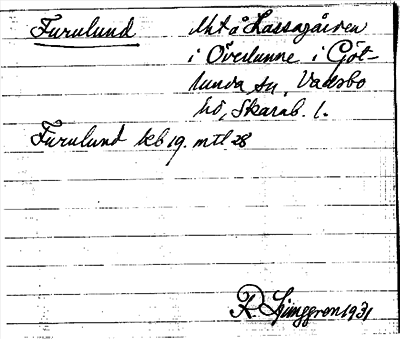 Furulund
Uht å Lassagården
i Överlunne i Göt-
lunda sn, Vadsbo
hd, Skarab. l.
Furulund kb 19. mtl 28
R. Ljunggren 1931